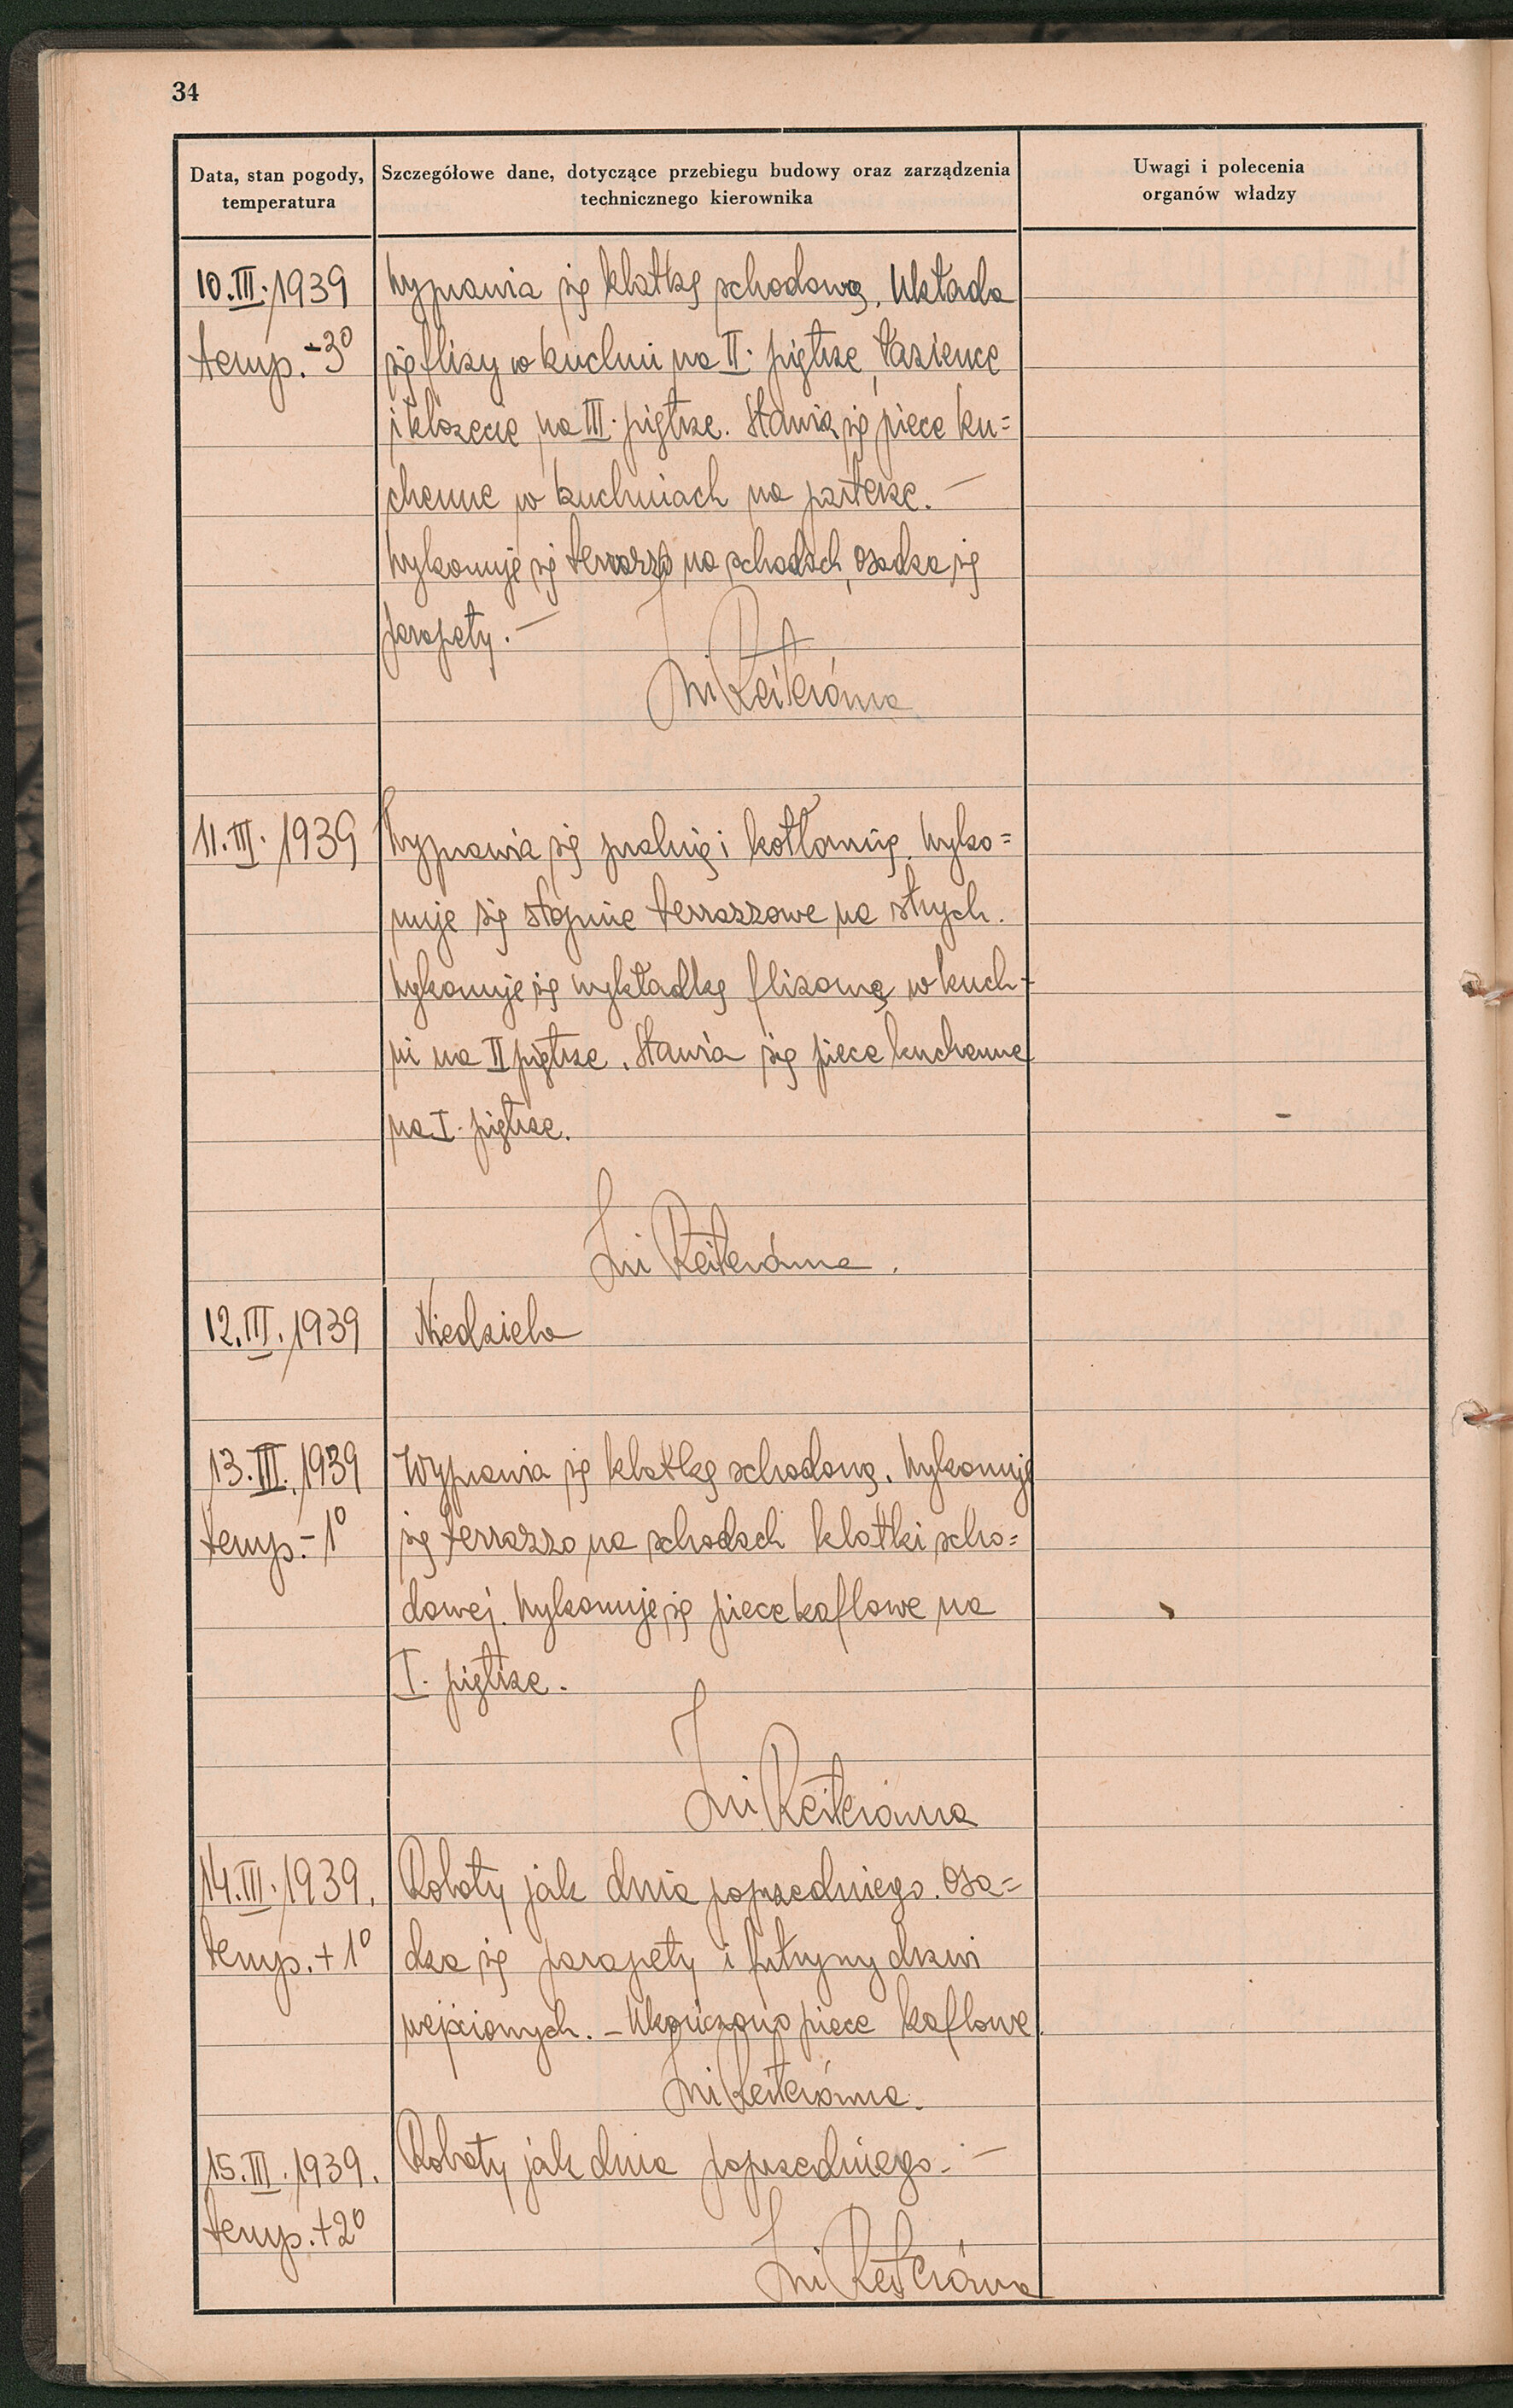 34
Data, stan pogody,
temperatura
Szczegółowe dane, dotyczące przebiegu budowy oraz zarządzenia
technicznego kierownika
Uwagi i polecenia
organów władzy
10.III.1939
Wyprawia się klatkę schodową. Układa
temp. -3°
się flizy w kuchni na II. piętrze, łazience
i klozecie na III. piętrze. Stawia się piece ku=
chenne w kuchniach na parterze. —
Wykonuje się terrazzo na schodach, osadza się
parapety. —
Reiterówna
11.III.1939
Wyprawia się pralnię i kotłownię. Wyko=
nuje się stopnie terrazzowe na strych.
Wykonuje się wykładkę flizową w kuch-
ni na II piętrze. Stawia się piece kuchenne
na I. piętrze.
Reiterówna.
12.III.1939
Niedziela
13.III.1939
Wyprawia się klatkę schodową. Wykonuje
temp. -1°
się terrazzo na schodach klatki scho=
dowej. Wykonuje się piece kaflowe na
I. piętrze.
Reiterówna
14.III.1939.
Roboty jak dnia poprzedniego. Osa=
temp. +1°
dza się parapety i futryny drzwi
wejściowych. - Ukończono piece kaflowe.
Reiterówna.
15.III.1939.
Roboty jak dnia poprzedniego. —
temp. +2°
Reiterówna